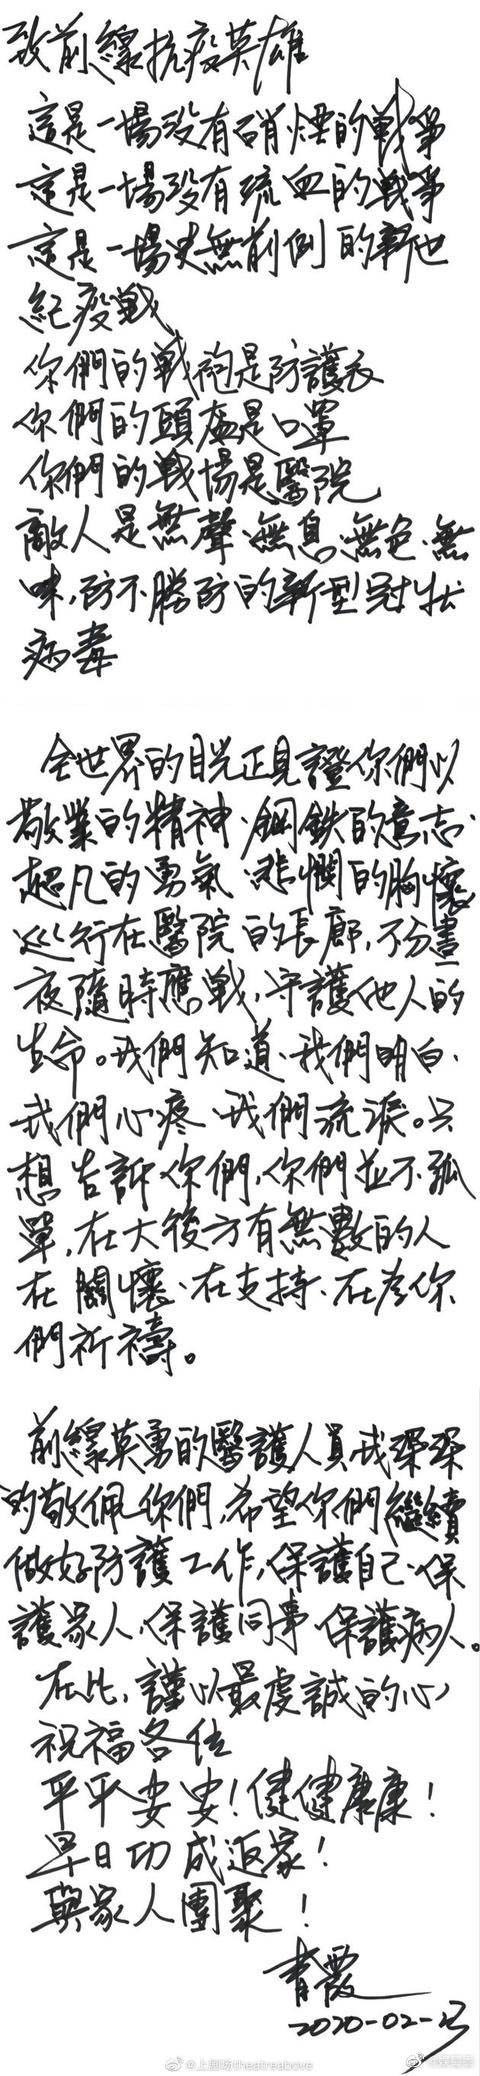 致前線抗疫英雄
這是一場没有硝煙的戰爭
這是一場没有流血的戰爭
這是一場史無前例的新世
紀疫戰
你們的戰袍是防護衣
你們的頭盔是口罩
你們的戰場是醫院
敵人是無聲、無息、無色、無
味，防不勝防的新型冠狀
病毒
全世界的目光正見證你們以
敬業的精神、鋼鐵的意志、
超凡的勇氣、悲憫的胸懷
巡行在醫院的長廊，不分晝
夜隨時應戰，守護他人的
生命。我們知道、我們明白、
我們心疼、我們流淚。只
想告訴你們，你們並不孤
單，在大後方有無數的人
在關懷、在支持、在為你
們祈禱。
前線英勇的醫護人員，我深深
的敬佩你們，希望你們繼續
做好防護工作，保護自己、保
護家人、保護同事、保護病人。
在此，謹以最虔誠的心
祝福各位
平平安安！健健康康！
早日功成返家！
與家人團聚！
青霞
2020-02-3
@上剧场theatreabove